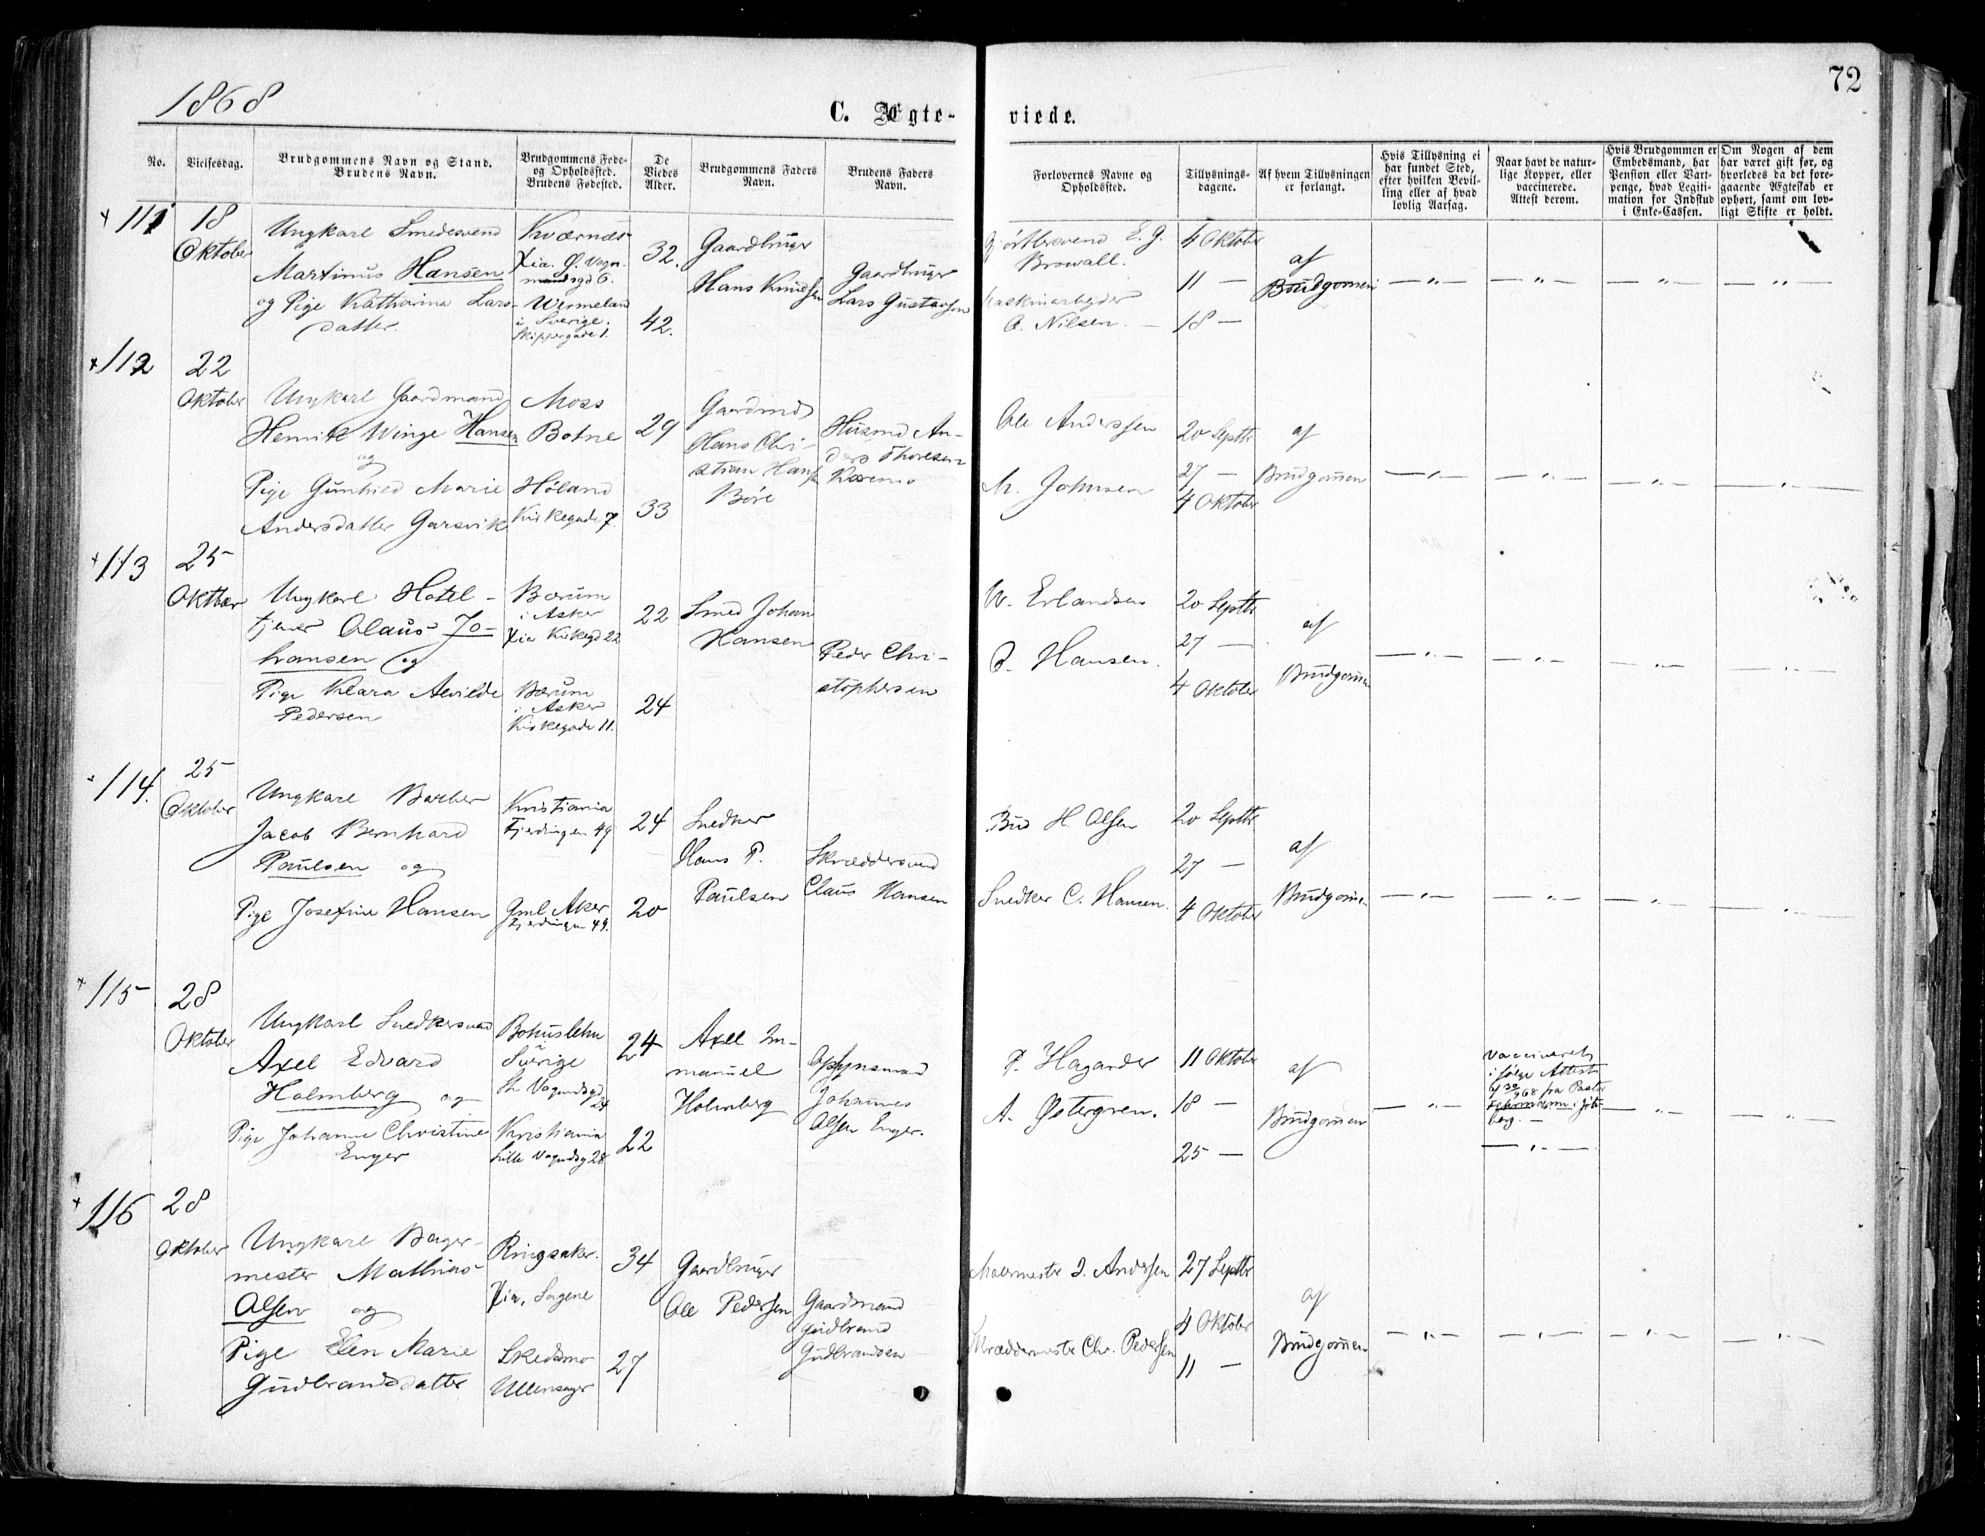 1868
72
C. Ægte-
viede.
No.
Vielsesdag.
Brudgommens Navn og Stand.
Brudens Navn.
Brudgommens Føde-
og Opholdssted.
Brudens Fødested.
De
Viedes
Alder.
Brudgommens Faders
Navn.
Brudens Faders
Navn.
Forlovernes Navne og
Opholdssted.
Tillysnings-
dagene.
Af hvem Tillysningen
er forlangt.
Hvis Tillysning ei
har fundet Sted,
efter hvilken Bevil-
ling eller af hvad
lovlig Aarsag.
Naar havt de natur-
lige Kopper, eller
vaccinerede.
Attest derom.
Hvis Brudgommen er
Embedsmand, har
Pension eller Vart-
penge, hvad Legiti-
mation for Indskud
i Enke-Cassen.
Om Nogen af dem
har været gift før, og
hvorledes da det fore-
gaaende Ægteskab er
ophørt, samt om lov-
ligt Skifte er holdt.
111
18
Oktober
Ungkarl Smedesvend
Martinus Hansen
og Pige Katharina Lars-
datter.
Kværnæs
Xia. Ø. Vogn-
mandsgd 6.
Wermeland
i Sverige.
Skippergade 1.
32.
42.
Gaardbruger
Hans Knudsen
Gaardbruger
Lars Gustavsen
Gjørtlersvend E. G.
Browall.
Maskinarbeider
A. Nilsen. —
4 Oktober
11 —
18 —
af
Brudgommen
112
22
Oktober
Ungkarl Gaardmand
Henrik Winge Hansen
og
Pige Gunhild Marie
Andersdatter Garsvik
Moss
Botne
Høland
Kirkegade 7.
29
33
Gaardmd
Hans Chri-
stian Hansen
Børe
Husmd An-
ders Thoresen
Ole Anderssen
M. Johnsen
20 Septbr
27 —
4 Oktober
af
Brudgommen
113
25
Oktober
Ungkarl Hotel-
tjener Olaus Jo-
hansen og
Pige Klara Alvilde
Pedersen
Bærum
i Asker
Xia Kirkegd 22
Bærum
i Asker
Kirkegade 11.
22
24
Smed Johan
Hansen
Peder Chri-
stophersen
W. Erlandsen
P. Hansen.
20 Septbr
27 —
4 Oktober
af
Brudgommen
114.
25
Oktober
Ungkarl Barber
Jacob Bernhard
Paulsen og
Pige Josefine Hansen
Kristiania
Fjerdingen 49.
Gml. Aker
Fjerdingen 49.
24
20
Snedker
Hans P.
Paulsen
Skræddersvend
Claus Hansen
Bud H. Olsen
Snedker C. Hansen.
20 Septbr
27 —
4 Oktober
af
Brudgommen
115
28
Oktober
Ungkarl Snedkersvend
Axel Edvard
Holmberg og
Pige Johanne Christine
Enger
Bohuslehn
Sverige
St. Vognmdsgd
24
Kristiania
Lille Vognmdsg 28
24
22
Axel Im-
manuel
Holmberg
Opsynsmand
Johannes
Olsen Enger.
P. Hagander
A. Østergren.
11 Oktober
18 —
25 —
af
Brudgommen
Vaccineret
ifølge Attest
af 30/9 68 fra Pastor
i Gøte-
borg. —
116
28
Oktober
Ungkarl Bager-
mester Mathias
Olsen og
Pige Elen Marie
Gudbrandsdatter
Ringsaker.
Xia, Sagene
Skedsmo
Ullensager
34
27
Gaardbruger
Ole Pedersen
Gaardmand
Gudbrand
Gudbrandsen
Malermester I. Andersen
Skræddermester Chr. Pedersen
27 Septbr
4 Oktober
11 —
af
Brudgommen